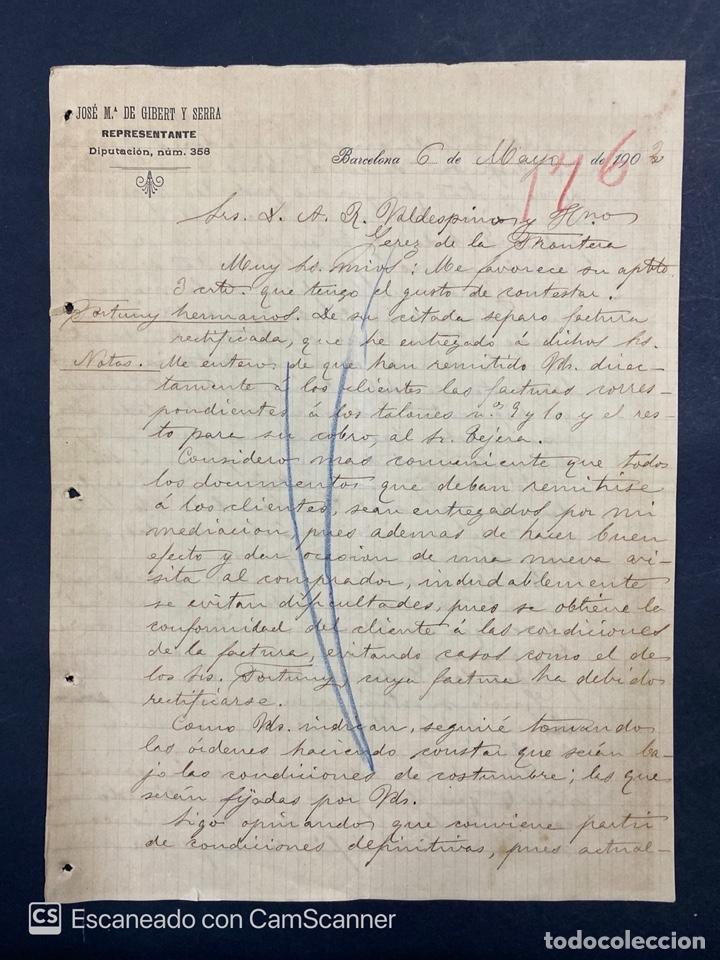 JOSÉ M.ª DE GIBERT Y SERRA
REPRESENTANTE
Diputación, núm. 358
Barcelona 6 de Mayo de 190
176
Srs. D. A. R. Valdespino y Hno
Jerez de la Frontera
Muy Srs. mios: Me favorece su aptdo.
3 crte. que tengo el gusto de contestar.
Fortuny hermanos. De su citada separo factura
rectificada, que he entregado á dichos Srs.
Notas. Me entero de que han remitido Vds. direc-
tamente á los clientes las facturas corres-
pondientes á los talones n.os 9 y 10 y el res-
to para su cobro, al Sr. Tejera.
Considero mas conveniente que todos
los documentos que deban remitirse
á los clientes, sean entregados por mi
mediacion, pues ademas de hacer buen
efecto y dar ocasion de una nueva vi-
sita al comprador, indudablemente
se evitan dificultades, pues se obtiene la
conformidad del cliente á las condiciones
de la factura, evitando casos como el de
los Srs. Fortuny, cuya factura ha debido
rectificarse.
Como Vds. indican, seguiré tomando
las órdenes haciendo constar que serán ba-
jo las condiciones de costumbre; las que
serán fijadas por Vds.
Sigo opinando que conviene partir
de condiciones definitivas, pues actual-
CS Escaneado con CamScanner
todocoleccion